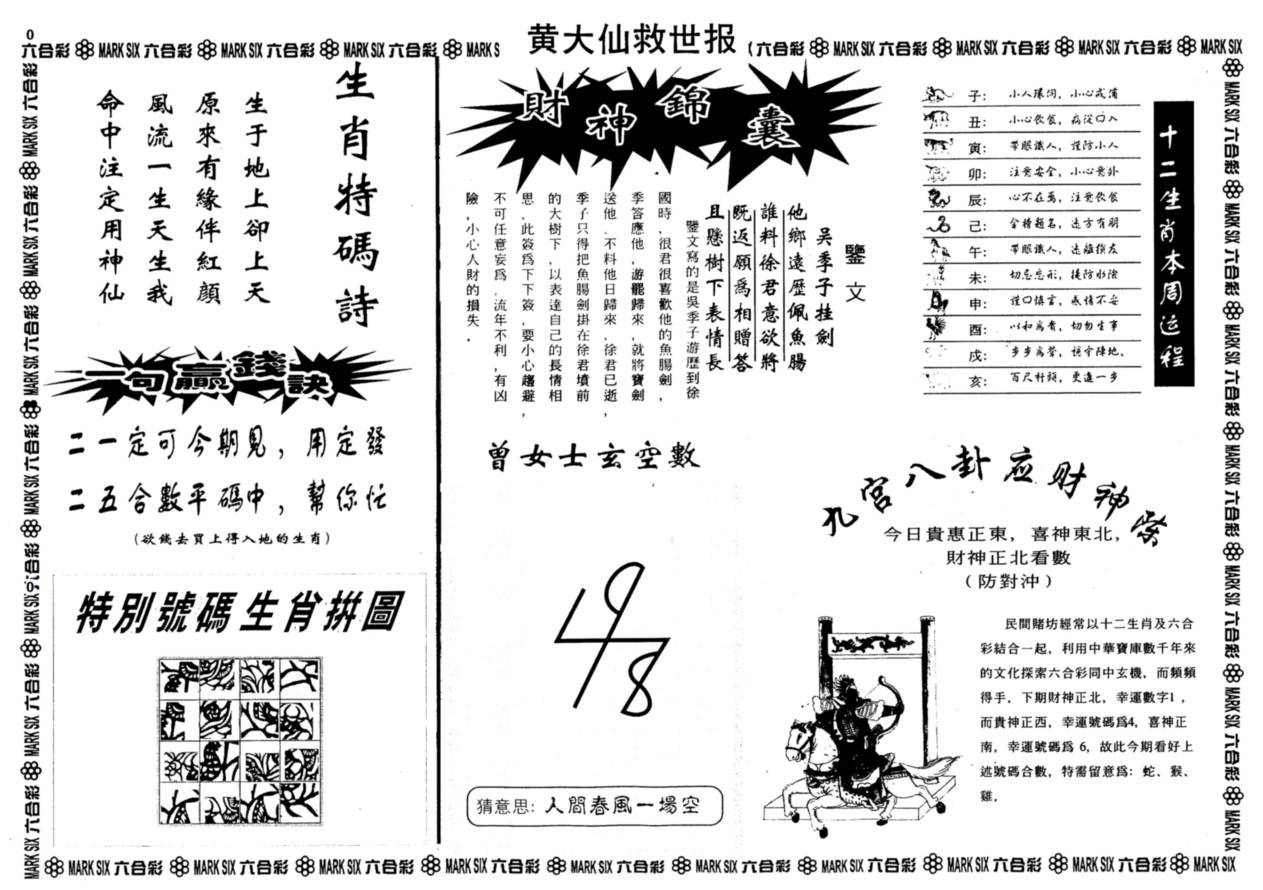 0
六合彩 MARK SIX 六合彩 MARK SIX 六合彩 MARK SIX 六合彩 MARK S
黄大仙救世报
六合彩 MARK SIX 六合彩 MARK SIX 六合彩 MARK SIX 六合彩 MARK SIX
生肖特碼詩
生于地上卻上天
原來有緣伴紅顏
風流一生天生我
命中注定用神仙
一句贏錢訣
二一定可今期見，用定發
二五合數平碼中，幫你忙
（欲錢去買上得入地的生肖）
特別號碼生肖拼圖
財神錦囊
鑒文
吳季子挂劍
他鄉遠歷佩魚腸
誰料徐君意欲將
既返願爲相贈答
且懸樹下表情長
鑒文寫的是吳季子游歷到徐
國時，很君很喜歡他的魚腸劍，
季答應他，游罷歸來，就將寶劍
送他．不料他日歸來，徐君已逝，
季子只得把魚腸劍掛在徐君墳前
的大樹下，以表達自己的長情相
思．此簽爲下下簽，要小心趨避，
不可任意妄爲．流年不利，有凶
險，小心人財的損失．
曾女士玄空數
9
4
8
猜意思：人間春風一場空
十二生肖本周运程
子：
丑：小心飲食，病從口入
寅：帶眼識人，謹防小人
卯：注意安全，小心意外
辰：心不在焉，注意飲食
己：金榜題名，遠方有朋
午：帶眼識人，遠離損友
未：切忌忘形，提防水險
申：謹口慎言，感情不妥
酉：以和爲貴，切勿生事
戌：步步爲營，謹守陣地、
亥：百尺杆頭，更進一步
九宮八卦应財神
今日貴惠正東，喜神東北，
財神正北看數
（防對沖）
民間賭坊經常以十二生肖及六合
彩結合一起，利用中華寶庫數千年來
的文化探索六合彩同中玄機，而頻頻
得手．下期財神正北，幸運數字1，
而貴神正西，幸運號碼爲4，喜神正
南，幸運號碼爲 6，故此今期看好上
述號碼合數，特需留意爲：蛇、猴、
雞．
MARK SIX 六合彩 MARK SIX 六合彩 MARK SIX 六合彩 MARK SIX 六合彩 MARK SIX 六合彩 MARK SIX 六合彩 MARK SIX 六合彩 MARK SIX 六合彩 MARK SIX 六合彩 MARK SIX